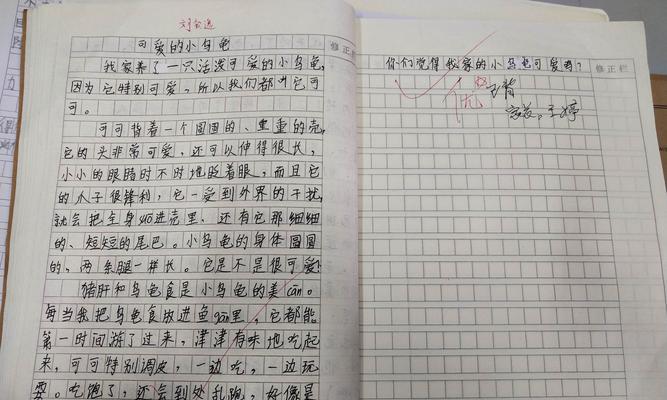 可爱的小乌龟
修正栏
我家养了一只活泼可爱的小乌龟,
因为它特别可爱,所以我们都叫它可
可。
可可背着一个圆圆的、重重的壳,
它的头非常可爱,还可以伸得很长,
小小的眼睛时不时地眨着眼,而且它
的爪子很锋利,它一受到外界的干扰,
就会把全身suō进壳里,还有它那细细
的、短短的尾巴。小乌龟的身体圆圆
的,两条腿一样长。它是不是很可爱!
猪肝和乌龟食是小乌龟的美cān。
每当我把乌龟食放进鱼gāng里,它都能
第一时间游了过来,津津有味地吃起
来,可可特别调皮,一边吃,一边玩
耍。吃饱了,还会到处乱跑,好像是
你们觉得我家的小乌龟可爱吗?
修正栏
优